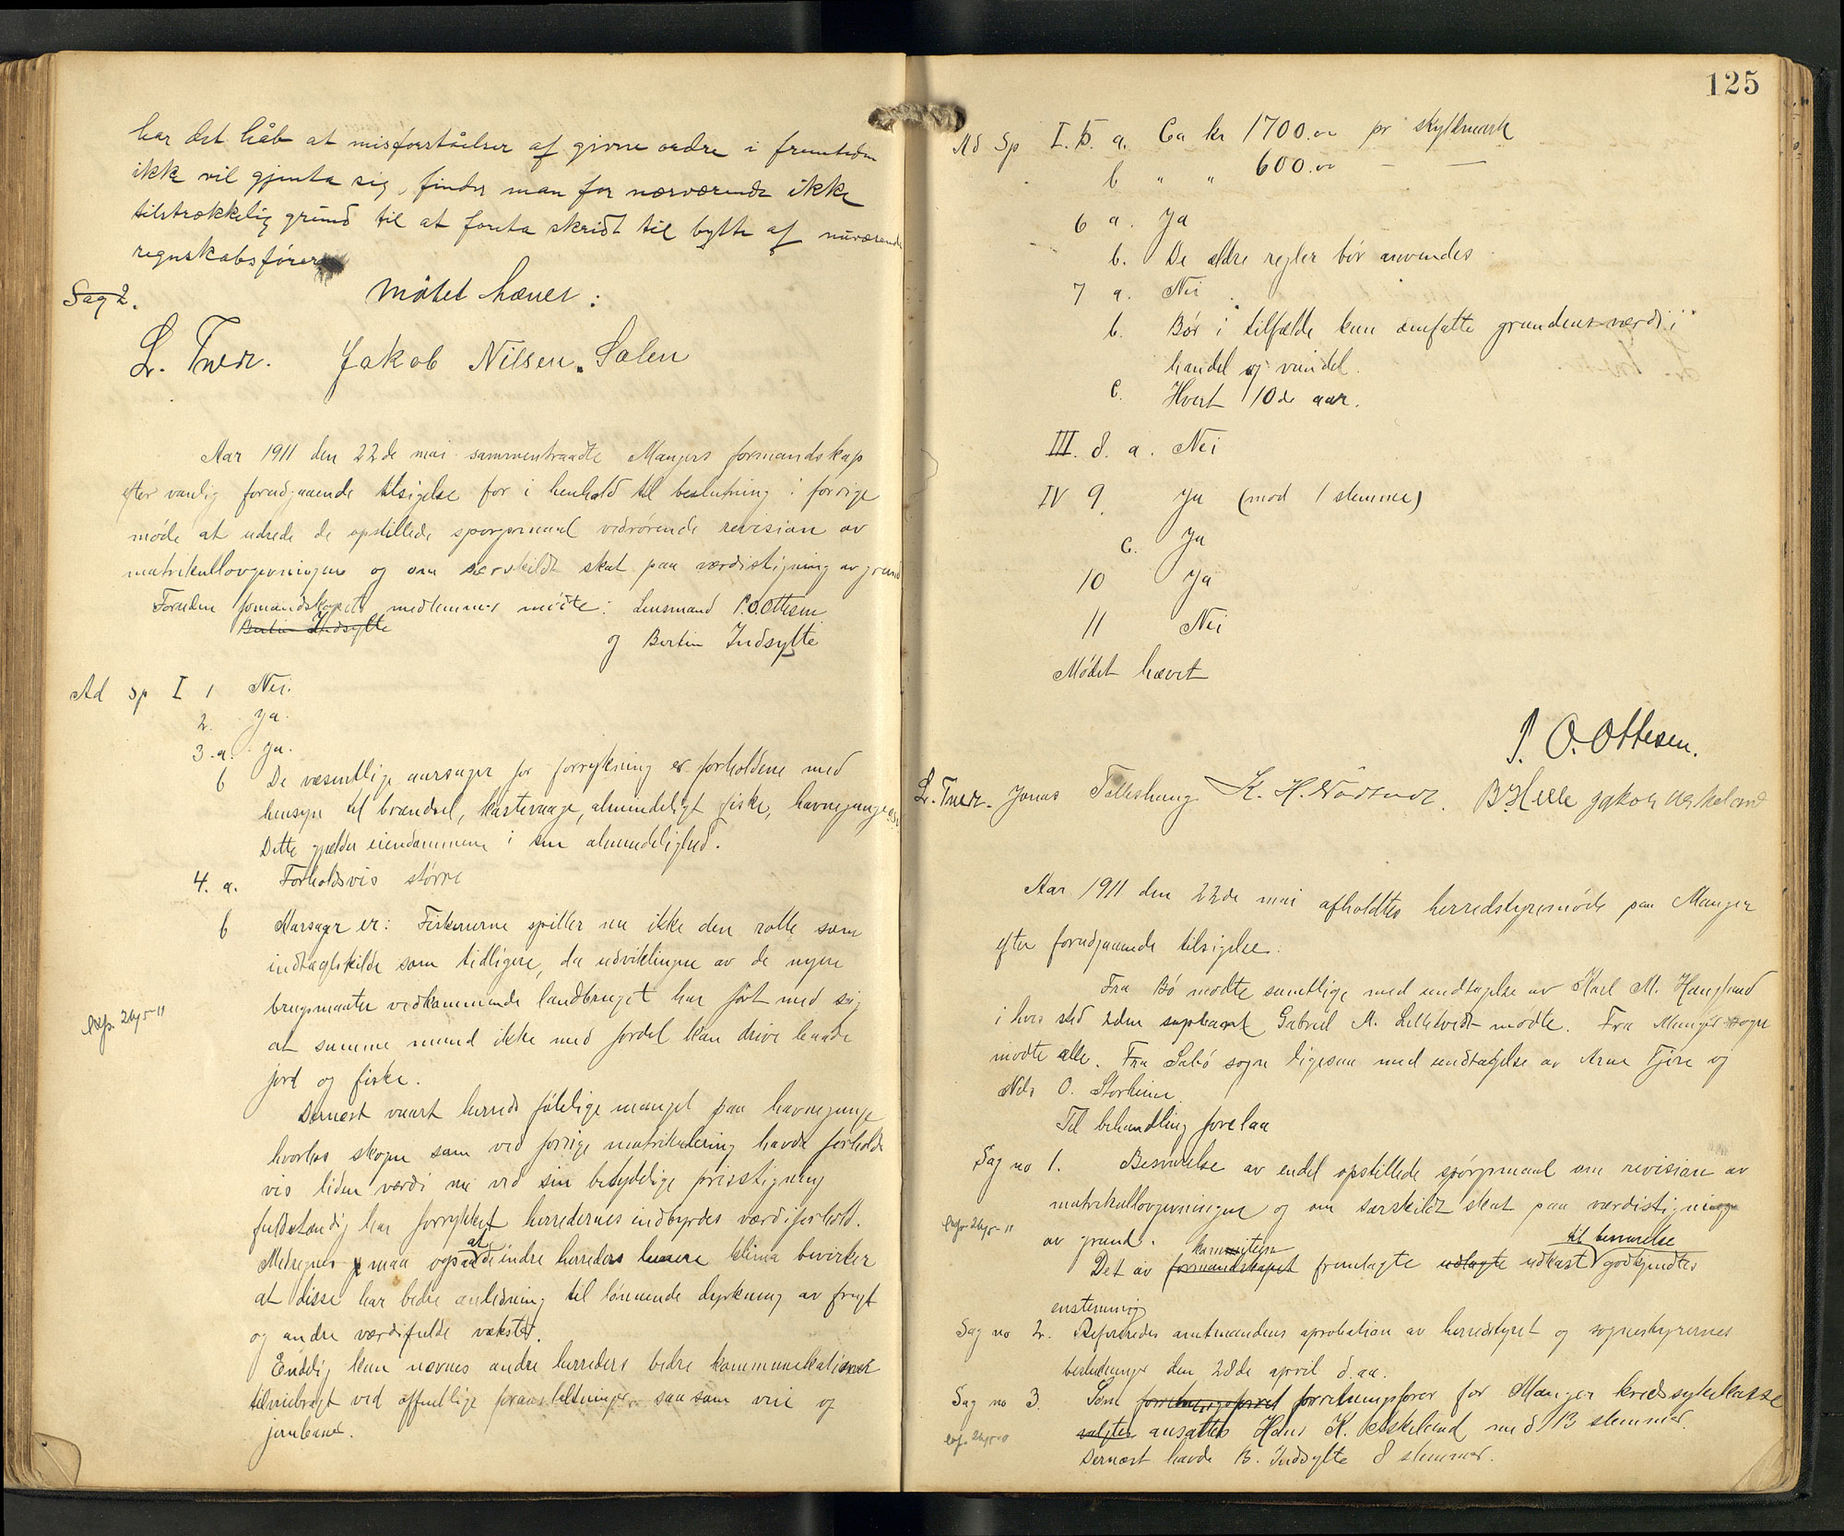 har det håb at misforståelser af givne ordre i fremtiden
ikke vil gjenta sig, finder man for nærværende ikke
tilstrækkelig grund til at foreta skridt til bytte af nuværende
regnskabsfører
Sag 2.
Mötet hæves:
L. Tvedt. Jakob Nilsen Solen
Aar 1911 den 22de mai sammentraadte Mangers formandskap
efter vanlig forudgaaende tilsigelse for i henhold til beslutning i forrige
møde at udrede de opstillede spørgsmaal vedrørende revision av
matrikullovgivningen og om særskildt skat paa værdistigning av grund
Foruden formandskapets medlemmer mödte: Lensmand P. O. Ottesen
Bertin Indsylte
og Bertin Indsylte
Ad Sp I 1 Nei.
2. Ja.
3. a. Ja.
b De væsentlige aarsager for forrykning er forholdene med
hensyn til brændsel, kastevaage, almindeligt fiske, havnegange
Dette gjælder eiendommene i sin almindelighed.
4. a. Forholdsvis större
b Aarsager er: Fiskerierne spiller nu ikke den rolle som
indtægtskilde som tidligere, da udviklingen av de nyere
brugsmaater vedkommende landbruget har fört med sig
at samme mand ikke med fordel kan drive baade
jord og fiske.
Exp. 24/5-11
Dernæst vaart herreds følelige mangel paa havnegange
hvorhos skogen som ved forrige matrikulering havde forholds
vis liden værdi nu ved sin betydelige prisstigning
fuldstændig har forrykket herredernes indbyrdes værdiforhold.
Medregnes maa ogsaa at de indre herreders lunere klima bevirker
at disse har bedre anledning til lönnende dyrkning av frugt
og andre værdifulde vækster.
Endelig kan nævnes andre herreders bedre kommunikationer
tilveiebragt ved offentlige foranstaltninger saasom vei og
jernbaner.
125
Ad Sp I. 5. a. Ca kr 1700.00 pr skyldmark
b " " 600.00 — —
6 a. Ja
b. De ældre regler bör anvendes
7 a. Nei
b. Bör i tilfælde kun omfatte grundens værdi i
handel og vandel.
c. Hvert 10de aar.
III. 8. a. Nei
IV 9. Ja (mod 1 stemme)
c. Ja
10 Ja
11 Nei
Mödet hævet
P. O. Ottesen.
L. Tvedt. Jonas Telleshaug K. H. Nordnes. B. Helle Jakob Askeland
Aar 1911 den 22de mai afholdtes herredstyremöde paa Manger
efter forudgaaende tilsigelse.
Fra Bö mödte samtlige med undtagelse av Karl M. Haugland
i hvis sted 2den supleant Gabriel A. Lilletvedt mödte. Fra Manger sogn
mödte alle. Fra Sæbö sogn ligesaa med undtagelse av Arne Fjere og
Nils O. Storheim.
Til behandling forelaa
Sag no 1. Besvarelse av endel opstillede spörgsmaal om revision av
matrikullovgivningen og om særskildt skat paa værdistigning
av grund.
Exp. 24/5-11
komiteen til besvarelse
Det av formandskapet fremlagte udlagte udkast godkjendtes
enstemmig
Sag no 2. Refereredes amtmandens aprobation av herredstyret og sognestyrernes
beslutninger den 28de april d.aa.
Sag no 3. Som forretningsförer forretningsförer for Manger kredssykekasse
valgtes ansattes Hans K. Askeland med 13 stemmer
Dernæst havde B. Indsylte 8 stemmer.